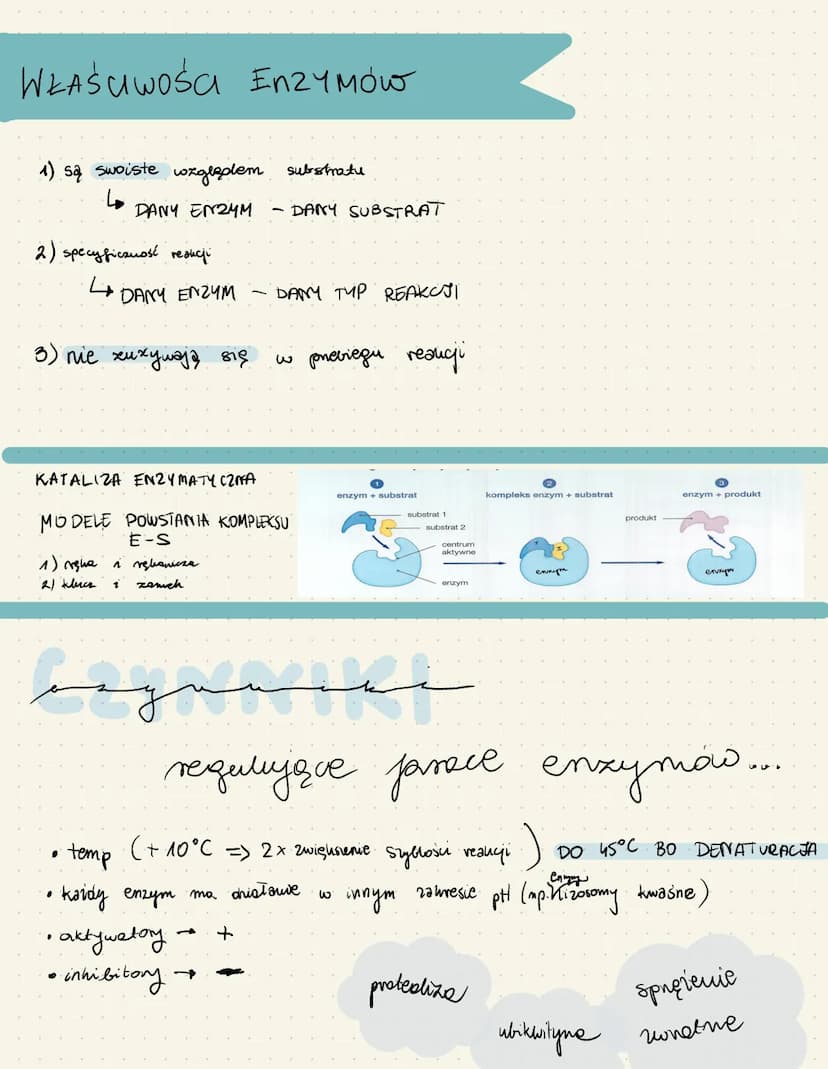 WŁAŚCIWOŚCI ENZYMÓW
1) są swoiste względem substratu
↳ DANY ENZYM – DANY SUBSTRAT
2) specyficzność reakcji
↳ DANY ENZYM – DANY TYP REAKCJI
3) nie zużywają się w przebiegu reakcji
KATALIZA ENZYMATYCZNA
MODELE POWSTANIA KOMPLEKSU
E-S
1) ręka i rękawicza
2) klucz i zamek
1
enzym + substrat
substrat 1
substrat 2
centrum
aktywne
enzym
2
kompleks enzym + substrat
enzym
3
enzym + produkt
produkt
enzym
CZYNNIKI
czynniki
regulujące pracę enzymów...
• temp (+10°C => 2x zwiększenie szybkości reakcji) DO 45°C BO DENATURACJA
• każdy enzym ma działanie w innym zakresie pH (np. enzy lizosomy kwaśne)
• aktywatory → +
• inhibitory → –
proteoliza
ubikwityna
sprzężenie
zwrotne